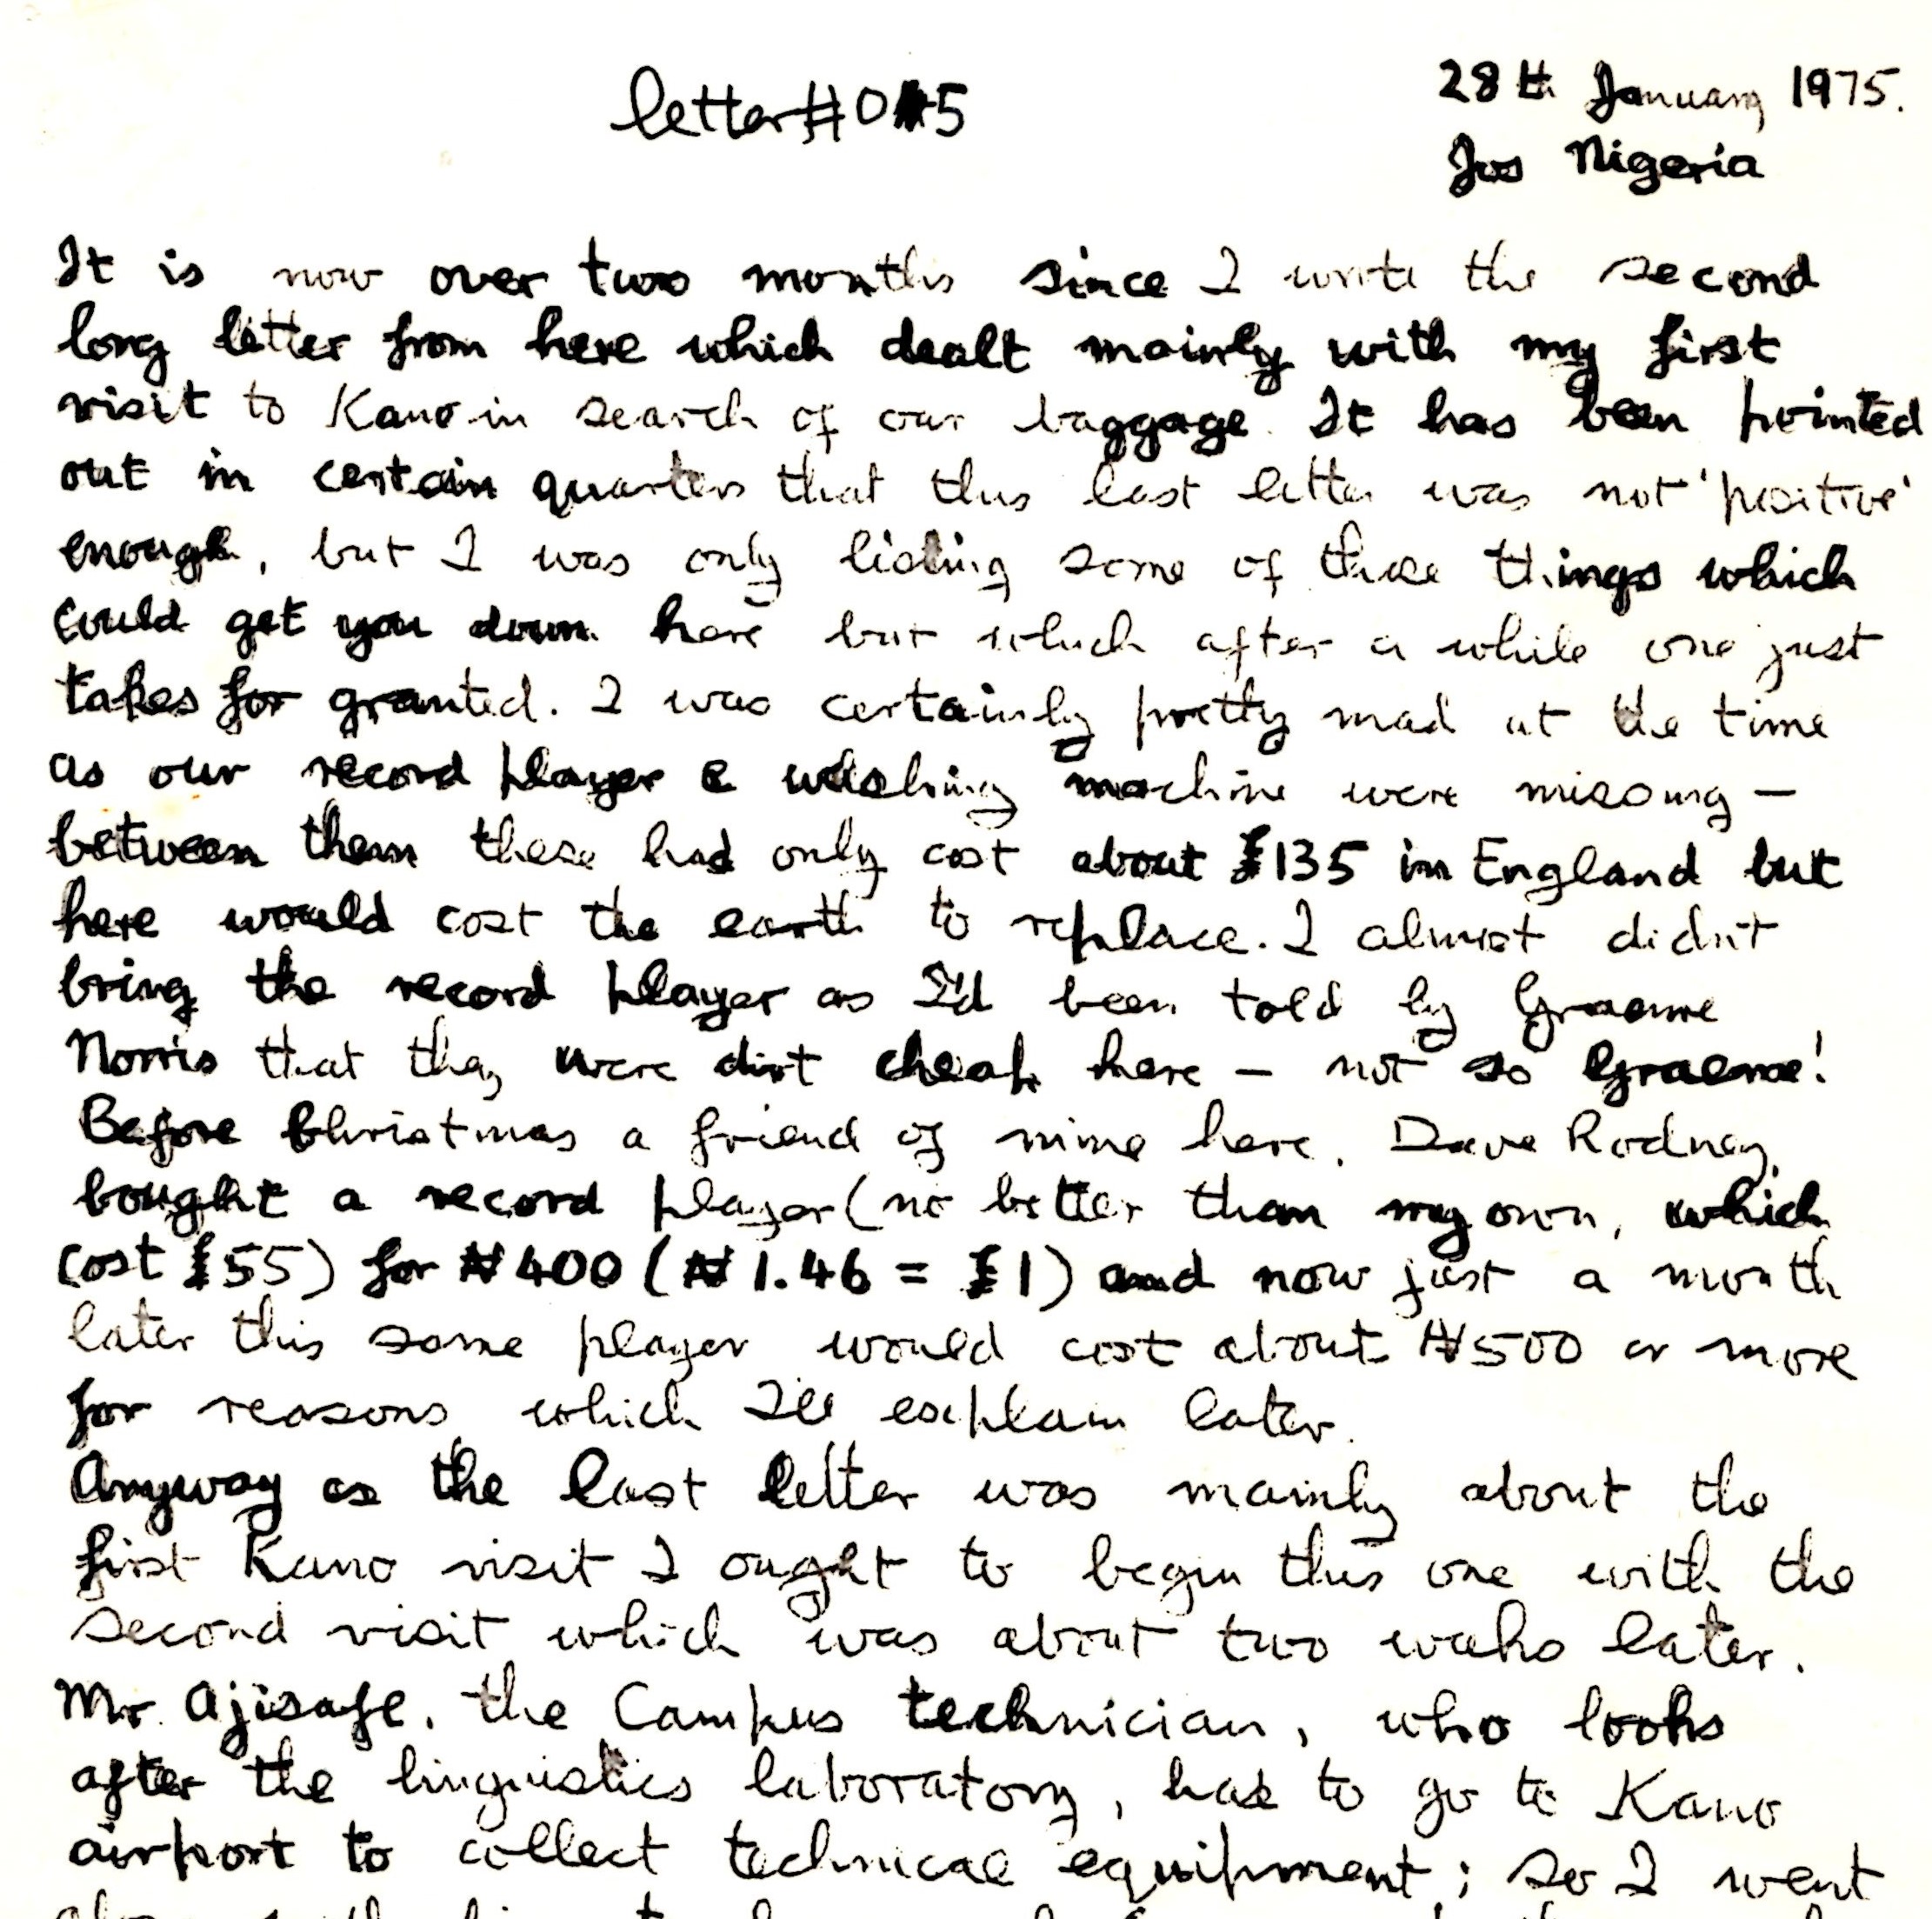 letter#05
28th January 1975.
Jos Nigeria
It is now over two months since I wrote the second
long letter from here which dealt mainly with my first
visit to Kano in search of our baggage. It has been pointed
out in certain quarters that this last letter was not 'positive'
enough, but I was only listing some of those things which
could get you down here but which after a while one just
takes for granted. I was certainly pretty mad at the time
as our record player & washing machine were missing —
between them these had only cost about £135 in England but
here would cost the earth to replace. I almost didn't
bring the record player as I'd been told by Graeme
Norris that they were dirt cheap here — not so Graeme!
Before Christmas a friend of mine here, Dave Rodney,
bought a record player (no better than my own, which
cost £55) for ₦400 (₦1.46 = £1) and now just a month
later this same player would cost about ₦500 or more
for reasons which I'll explain later.
Anyway as the last letter was mainly about the
first Kano visit I ought to begin this one with the
second visit which was about two weeks later.
Mr. Ajisafe, the Campus technician, who looks
after the linguistics laboratory, has to go to Kano
airport to collect technical equipment; so I went